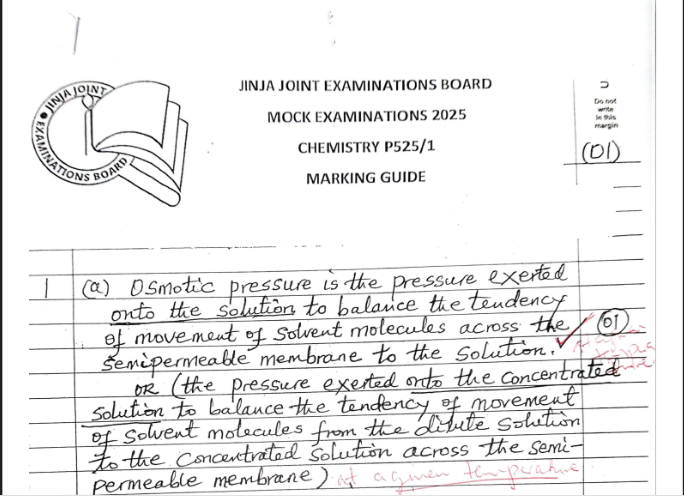 JINJA JOINT
EXAMINATIONS BOARD
JINJA JOINT EXAMINATIONS BOARD
MOCK EXAMINATIONS 2025
CHEMISTRY P525/1
MARKING GUIDE
Do not
write
in this
margin
(01)
1 (a) Osmotic pressure is the pressure exerted
onto the solution to balance the tendency
of movement of solvent molecules across the 01
semipermeable membrane to the solution.
OR (the pressure exerted onto the concentrated
solution to balance the tendency of movement
of solvent molecules from the dilute solution
to the concentrated solution across the semi-
permeable membrane) at a given temperature